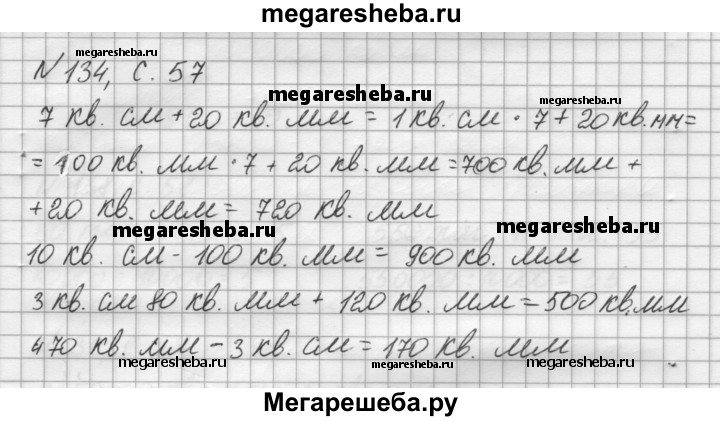 megaresheba.ru
megaresheba.ru
№134, с. 57
megaresheba.ru
7 кв. см + 20 кв. мм = 1 кв. см · 7 + 20 кв. мм =
= 100 кв. мм · 7 + 20 кв. мм = 700 кв. мм +
+ 20 кв. мм = 720 кв. мм
megaresheba.ru
megaresheba.ru
10 кв. см - 100 кв. мм = 900 кв. мм
3 кв. см 80 кв. мм + 120 кв. мм = 500 кв. мм
470 кв. мм - 3 кв. см = 170 кв. мм
megaresheba.ru
megaresheba.ru
Мегарешеба.ру